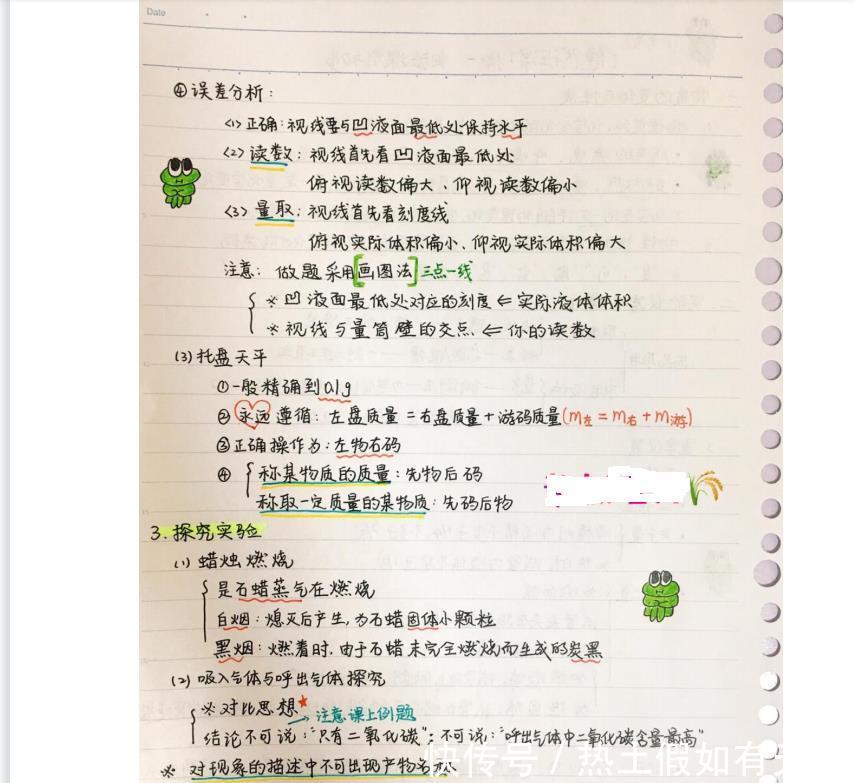 Date
④误差分析:
<1>正确:视线要与凹液面最低处保持水平
<2>读数:视线首先看凹液面最低处
俯视读数偏大、仰视读数偏小
<3>量取:视线首先看刻度线
俯视实际体积偏小、仰视实际体积偏大
注意:做题采用[画图法]三点一线
※凹液面最低处对应的刻度⇐实际液体体积
※视线与量筒壁的交点⇐你的读数
(3)托盘天平
①一般精确到0.1g
②永远遵循:左盘质量=右盘质量+游码质量(m左=m右+m游)
③正确操作为:左物右码
④称某物质的质量:先物后码
称取一定质量的某物质:先码后物
3.探究实验
(1)蜡烛燃烧
是石蜡蒸气在燃烧
白烟:熄灭后产生,为石蜡固体小颗粒
黑烟:燃着时,由于石蜡未完全燃烧而生成的炭黑
(2)吸入气体与呼出气体探究
※对比思想★→注意课上例题
结论不可说:"只有二氧化碳";不可说:"呼出气体中二氧化碳含量最高"
※对现象的描述中不可出现产物名称
快传号/热土假如有